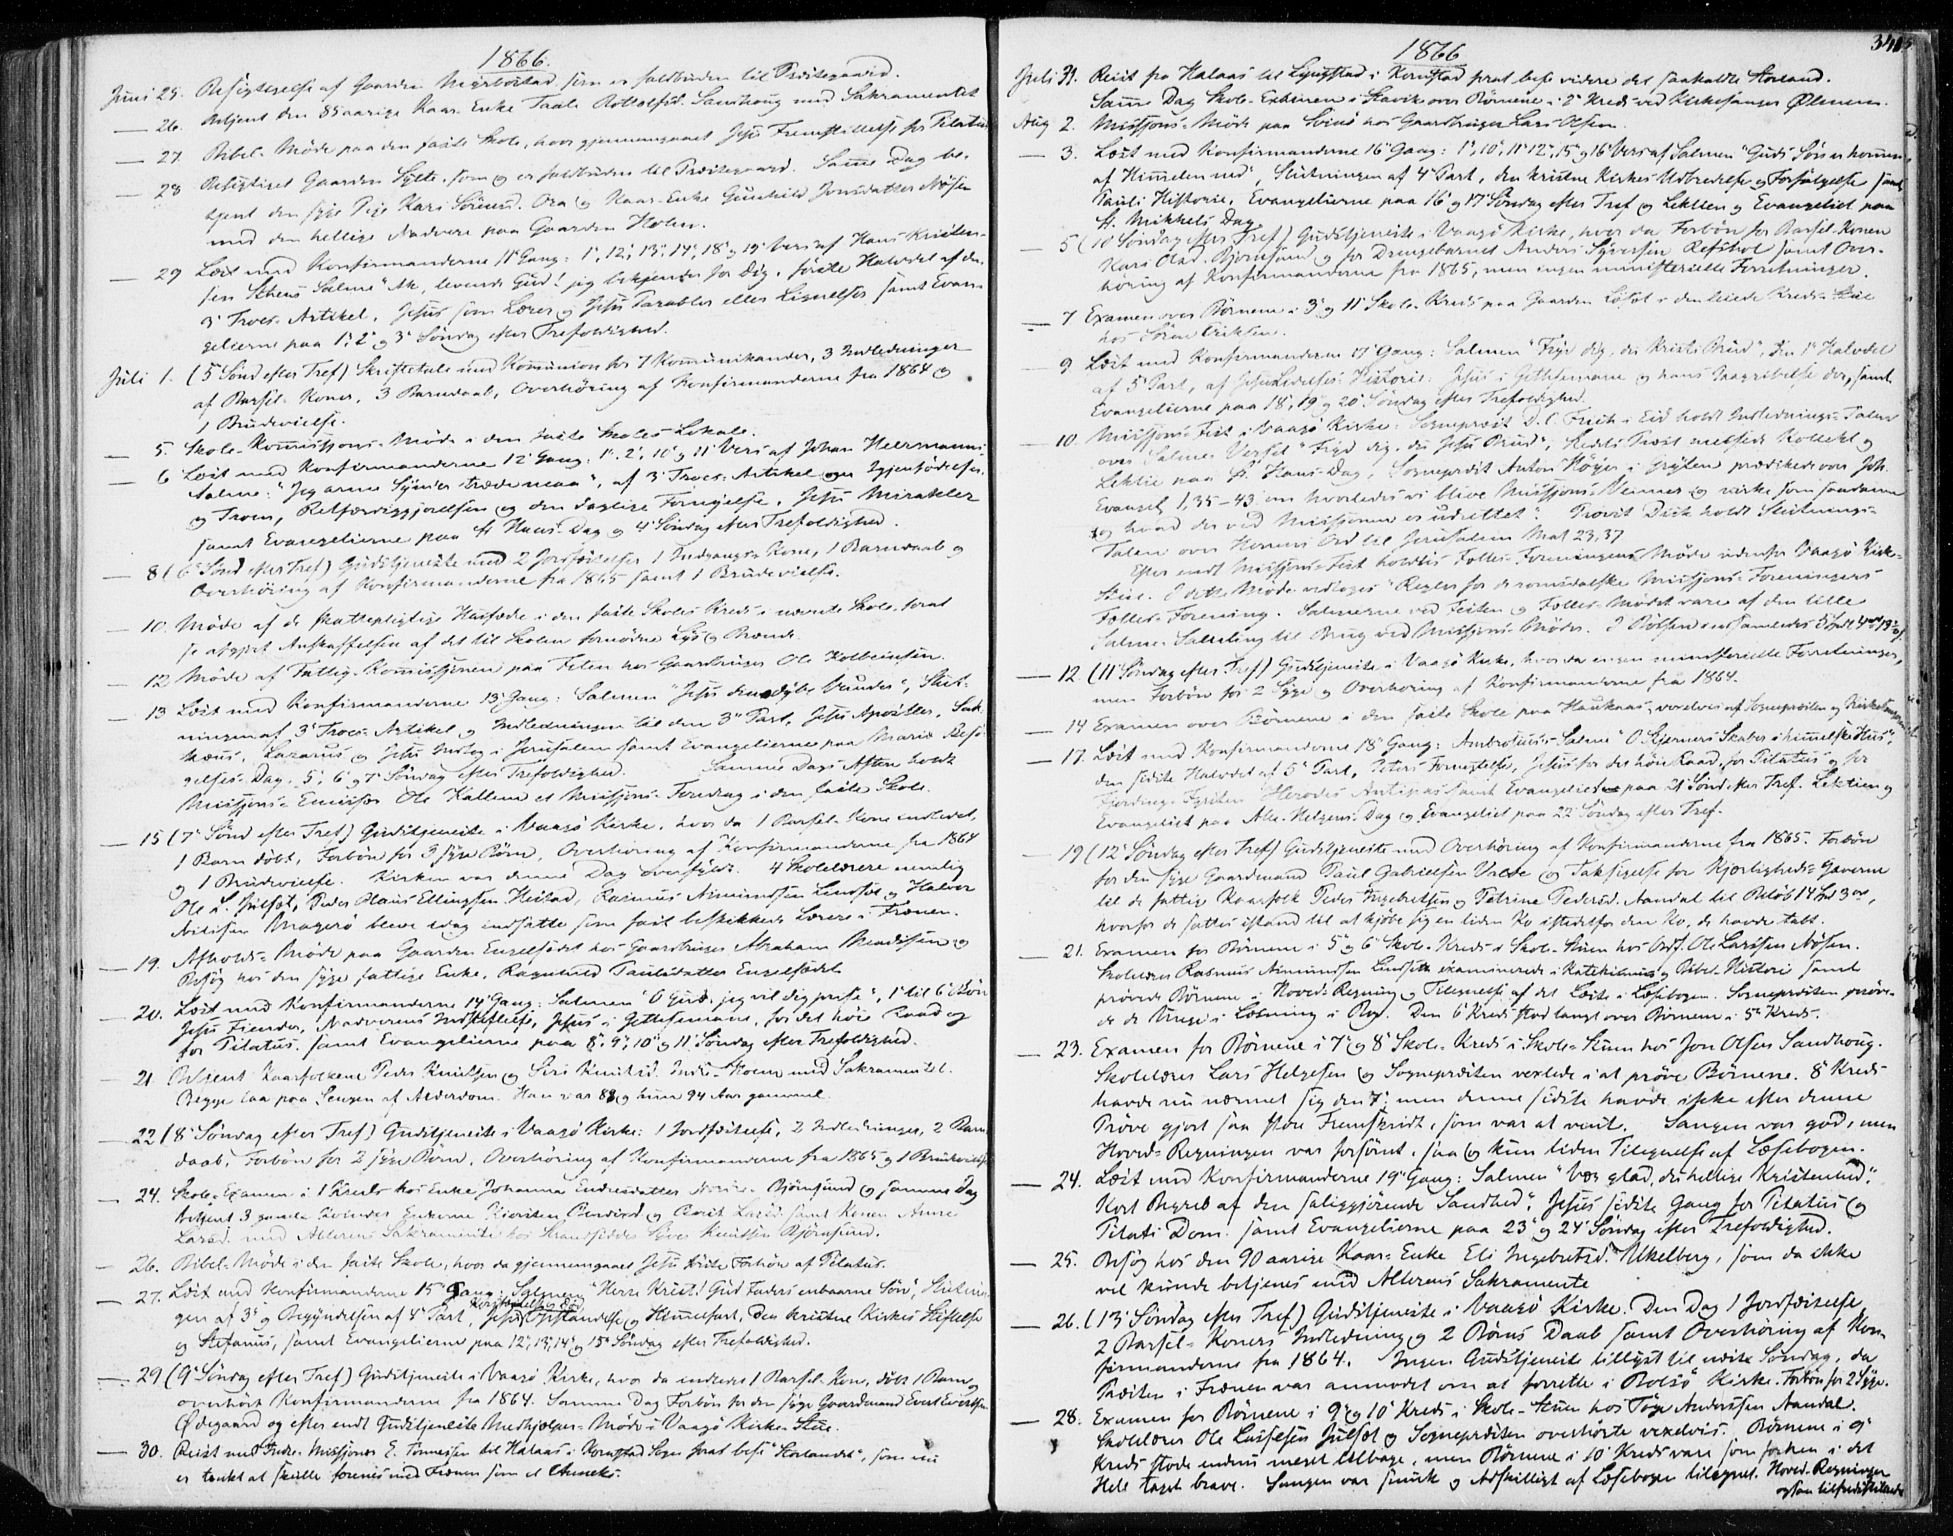 1866.
Juni 25. Besigtigelse af Gaarden som er faldbuden til Præstegaard.
— 26. Betjent den 85aarige Kaar-Enke Taale Rottolfsd. Sandhoug med Sakramentet
— 27. Bibel-Møde paa den faste Skole, hvor gjennemgaaet Jesu Fremstillelse for Pilatus
— 28 Besigtiget Gaarden Sylte, som og er faldbuden til Præstegaard. Samme Dag be-
tjent den syge Pige Kari Sörensd. Ora og Kaar-Enke Gunhild Jonsdatter Nøsen
med den hellige Nadvere paa Gaarden Holen.
— 29 Læst med Konfirmanderne 11te Gang: 1ste, 12, 13, 14, 18 og 19 Vers af Hans Kristen-
sen Sthens Salme "Ak, levende Gud! jeg bekjender for dig, første Halvdel af den
3die Troes-Artikel. Jesus som Lærer og Jesu Parabler eller Lignelser samt Evan-
gelierne paa 1, 2 og 3 Søndag efter Trefoldighed.
Juli 1. (5 Sönd efter Tref) Skriftetale med Kommunion for 7 Kommunikanter, 3 Indledninger
af Barsel-Koner, 3 Barnedaab, Overhöring af Konfirmanderne fra 1864 og
1 Brudevielse.
— 5. Skole-Kommissions-Møde i den faste Skoles Lokale.
— 6 Læst med Konfirmanderne 12 Gang: 1, 2, 10 og 11 Vers af Johan Heermanns
Salme: "Jeg arme Synder træde maa", af 3 Troes-Artikel om Igjenfödelsen
og Troen, Retfærdiggjørelsen og den daglige Fornyelse, Jesu Mirakler
samt Evangelierne paa St Hans-Dag og 4 Söndag efter Trefoldighed.
— 8 (6 Sönd efter Tref) Gudstjeneste med 2 Jordfæstelser, 1 Indgangs-Kone, 1 Barnedaab og
Overhöring af Konfirmanderne fra 1865 samt 1 Brudevielse.
— 10. Møde af de skattepligtige Husfædre i den faste Skoles Kreds i nævnte Skole, forat
faa afgjort Anskaffelsen af det til Skolen fornödne Lys og Brænde.
— 12 Møde af Fattig-Kommissionen paa Felen hos Gaardbruger Ole Kolbeinsen.
— 13 Læst med Konfirmanderne 13 Gang: Salmen "Jesu dine dybe Vunder", Slut-
ningen af 3 Troes-Artikel og Indledningen til den 3 Part, Jesu Apostler, Sak-
kæus, Lazarus og Jesu Indtog i Jerusalem samt Evangelierne paa Mariæ Besö-
gelses-Dag, 5, 6 og 7 Söndag efter Trefoldighed. Samme Dags Aften holdt
Missions-Emissær Ole Kallem et Missions-Foredrag i den faste Skole.
— 15 (7 Sönd efter Tref) Gudstjeneste i Vaagö Kirke, hvor da 1 Barsel-Kone indledet,
1 Barn döbt, Forbön for 3 syge Börn, Overhöring af Konfirmanderne fra 1864
og 1 Brudevielse. Kirken var denne Dag overfyldt. 4 Skolelærere nemlig
Ole L. Julset, Peder Olaus Ellingsen Hustad, Rasmus Aimundsen Lindset og Halvor
Nilsen Magerö bleve idag indsatte som fast beskikkede Lærere i Frænen.
— 19. Afholds-Møde paa Gaarden Engelsödet hos Gaardbruger Abraham Bendixsen og
Besøg hos den syge fattige Enke, Ragnhild Paulsdatter Engelsödet.
— 20. Læst med Konfirmanderne 14 Gang: Salmen "O Gud, jeg vil dig prise", 1 til 6 Bön
Jesu Fiender, Nadverens Indstiftelse, Jesus i Gethsemane, for det höie Raad og
for Pilatus, samt Evangelierne paa 8, 9, 10 og 11 Söndag efter Trefoldighed.
— 21 Betjent Kaarfolkene Peder Knutsen og Siri Knutsd. Indre-Moen med Sakramentet.
Begge laa paa Sengen af Alderdom. Han var 88 og hun 94 Aar gammel.
— 22 (8 Söndag efter Tref) Gudstjeneste i Vaagö Kirke: 1 Jordfæstelse, 2 Indledninger, 2 Barne-
daab, Forbön for 2 syge Börn, Overhöring af Konfirmanderne fra 1865 og 1 Brudevielse
— 24. Skole-Examen i 1 Kreds hos Enke Johanna Endresdatter Bjönsund og samme Dag
betjent 3 gamle Kvinder Enkerne og Berit Larsd samt Konen Anne
Larsd. med Alterens Sakramente hos Strandsidder Syver Knutsen Björnsund.
— 26. Bibel-Møde i den faste Skole, hvor da gjennemgaaet Jesu Forhör af Pilatus.
— 27. Læst med Konfirmanderne 15 Gang: Salmen "Herre Krist! Gud Faders enbaarne Sön", Slutnin-
gen af 3 og Begyndelsen af 4 Part, Jesu Korsfæstelse, Död, Opstandelse og Himmelfart, Den kristne Kirkes Stiftelse
og Stefanus, samt Evangelierne paa 12, 13, 14 og 15 Söndag efter Trefoldighed.
— 29 (9 Söndag efter Tref) Gudstjeneste i Vaagö Kirke, hvor da indledet 1 Barsel-Kone, döbt 1 Barn og
overhört Konfirmanderne fra 1864. Samme Dag Forbön for den syge Gaardmand Evert Evertsen
Ödegaard og efter endt Gudstjeneste Medhjælper-Møde i Vaagö Kirke-Stue.
— 30. Reist med Indre-Missionær E. Tønnessen til Halaas i Kornstad Sogn forat bese "Storlandet", som nu
er tænkt at skulle forenes med Frænen som et Annex.
1866
341
Juli 31. Reist fra Halaas til Lyngstad i Kornstad forat bese videre det saakaldte Storland.
Samme Dag Skole-Examen i Stavik over Börnene i 2 Kreds ved Kirkesanger Ølmem.
Aug 2. Missions-Møde paa Svinö hos Gaardbruger Lars Olsen.
— 3. Læst med Konfirmanderne 16 Gang: 1, 10, 11, 12, 15 og 16 Vers af Salmen "Guds Sön er kommen
af Himmelen ned", Slutningen af 4 Part, den kristne Kirkes Udbredelse og Forfölgelse samt
Pauli Historie, Evangelierne paa 16 og 17 Söndag efter Tref og Lektien og Evangeliet paa
St. Mikkels Dag
— 5 (10 Söndag efter Tref) Gudstjeneste i Vaagö Kirke, hvor da Forbön for Barsel-Konen
Kari Olsd. Björnsund og for Drengebarnet Anders Syversen Refshol samt Over-
höring af Konfirmanderne fra 1865, men ingen ministerielle Forretninger.
— 7 Examen over Börnene i 3 og 11 Skole-Kreds paa Gaarden Löset i den leiede Kreds-Stue
hos Sören Eriksen.
— 9 Læst med Konfirmanderne 17 Gang: Salmen "Fryd dig, du Kristi Brud", Den 1 Halvdel
af 5 Part, af Jesu Lidelses-Historie: Jesus i Gethsemane og hans Paagribelse der, samt
Evangelierne paa 18, 19 og 20 Söndag efter Trefoldighed.
— 10. Missions-Fest i Vaagö Kirke: Sogneprest D. C. Frich i Eid holdt Indlednings-Talen
over Salme-Verset "Fryd dig, du Jesu Brud", Kredsts Prost messede Kollekt og
Lektie paa St Hans-Dag, Sogneprest Anton Höyer i Grytten prædikede over Joh.
Evangel 1, 35-43 "om hvorledes vi blive Missions-Venner og virke som saadanne
og hvad der ved Missionen er udrettet". Provst Dick holdt Slutnings-
Talen over Herrens Ord til Jerusalem Mat 23, 37
Efter endt Missions-Fest holdtes Fælles-Foreningens Møde udenfor Vaagö Kirke-
Stue. I dette Møde vedtoges "Regler for de romsdalske Missions-Foreningers
Fælles-Forening. Salmerne ved Festen og Fælles-Mødet vare af den lille
Salme-Samling til Brug ved Missions-Møder. I Bössen indsamledes 5 Spd 4 19 ß.
— 12. (11 Söndag efter Tref) Gudstjeneste i Vaagö Kirke, hvor da ingen ministerielle Forretninger,
men Forbön for 2 Syge og Overhöring af Konfirmanderne fra 1864.
— 14 Examen over Börnene i den faste Skole paa Haukaas, vexelvis af Sognepresten og Kirkesangeren
— 17. Læst med Konfirmanderne 18 Gang: Ambrosius's Salme "O Stjerners Skaber i himmelske Hus",
den sidste Halvdel af 5 Part, Peters Fornegtelse, Jesus for det höie Raad, for Pilatus og for
Fjerdings-Fyrsten Herodes Antipas samt Evangeliet paa 21 Sönd efter Tref. Lektien og
Evangeliet paa Alle-Helgens-Dag og Evangeliet paa 22 Söndag efter Tref.
— 19 (12 Söndag efter Tref) Gudstjeneste med Overhöring af Konfirmanderne fra 1865. Forbön
for den syge Gaardmand Paul Gabrielsen Valde og Taksigelse for Kjærligheds-Gaverne
til de fattige Kaarfolk Peder Ingebretsen og Petrine Pedersd. Aandal til Beløb 14 Spd 3 ort,
hvorfor de sattes istand til at kjöbe sig en liden Ko istedetfor den Ko, de havde tabt.
— 21. Examen for Börnene i 5 og 6 Skole-Kreds i Skole-Stuen hos Ordf. Ole Larssen Nösen.
Skolelærer Rasmus Aimundsen Lindset examinerede i Katekismus og Bibel-Historie samt
prövede Börnene i Hoved-Regning og Tilegnelse af det Læste i Læsebogen. Sognepresten prøve-
de de Unge i Læsning i Bog. Den 6 Kreds stod langt over Börnene i 5 Kreds.
— 23. Examen for Börnene i 7 og 8 Skole-Kreds i Skole-Stuen hos Jon Olsen Sandhoug.
Skolelærer Lars Helgesen og Sognepresten vexlede i at pröve Börnene. 8 Kreds
havde nu nærmet sig den 7, men denne sidste havde ikke efter denne
Pröve gjort saa store Fremskridt, som var at vente. Sangen var god, men
Hoved-Regningen var forsömt, saa og kun liden Tilegnelse af Læsebogen.
— 24. Læst med Konfirmanderne 19 Gang: Salmen "Vær glad, du hellige Kristenhed",
Kort Begreb af den saliggjörende Sandhed, Jesus sidste Gang for Pilatus og
Pilati Dom, samt Evangelierne paa 23 og 24 Söndag efter Trefoldighed.
— 25. Besøg hos den 90aarige Kaar-Enke Eli Ingebretsd. Ukkelberg, som da ikke
vel kunde betjenes med Alterens Sakramente
— 26. (13 Söndag efter Tref) Gudstjeneste i Vaagö Kirke. Den Dag 1 Jordfæstelse
2 Barsel-Koners Indledning og 2 Börns Daab samt Overhöring af Kon-
firmanderne fra 1864. Ingen Gudstjeneste tillyst til næste Söndag, da
Præsten i Frænen var anmodet om at forrette i Bolsö Kirke. Forbön for 2 Syge.
— 28. Examen for Börnene i 9 og 10 Kreds i Skole-Stuen hos Töge Anderssen Aandal.
Skolelærer Ole Julset og Sognepresten overhörte vexelvis. Börnene i 9
Kreds stode endnu meget tilbage, men Börnene i 10 Kreds vare som forhen i det
Hele taget brave. Sangen var smuk og Adskilligt af Læsebogen tilegnet. Hoved-Regningen
ogsaa tilfredsstillende